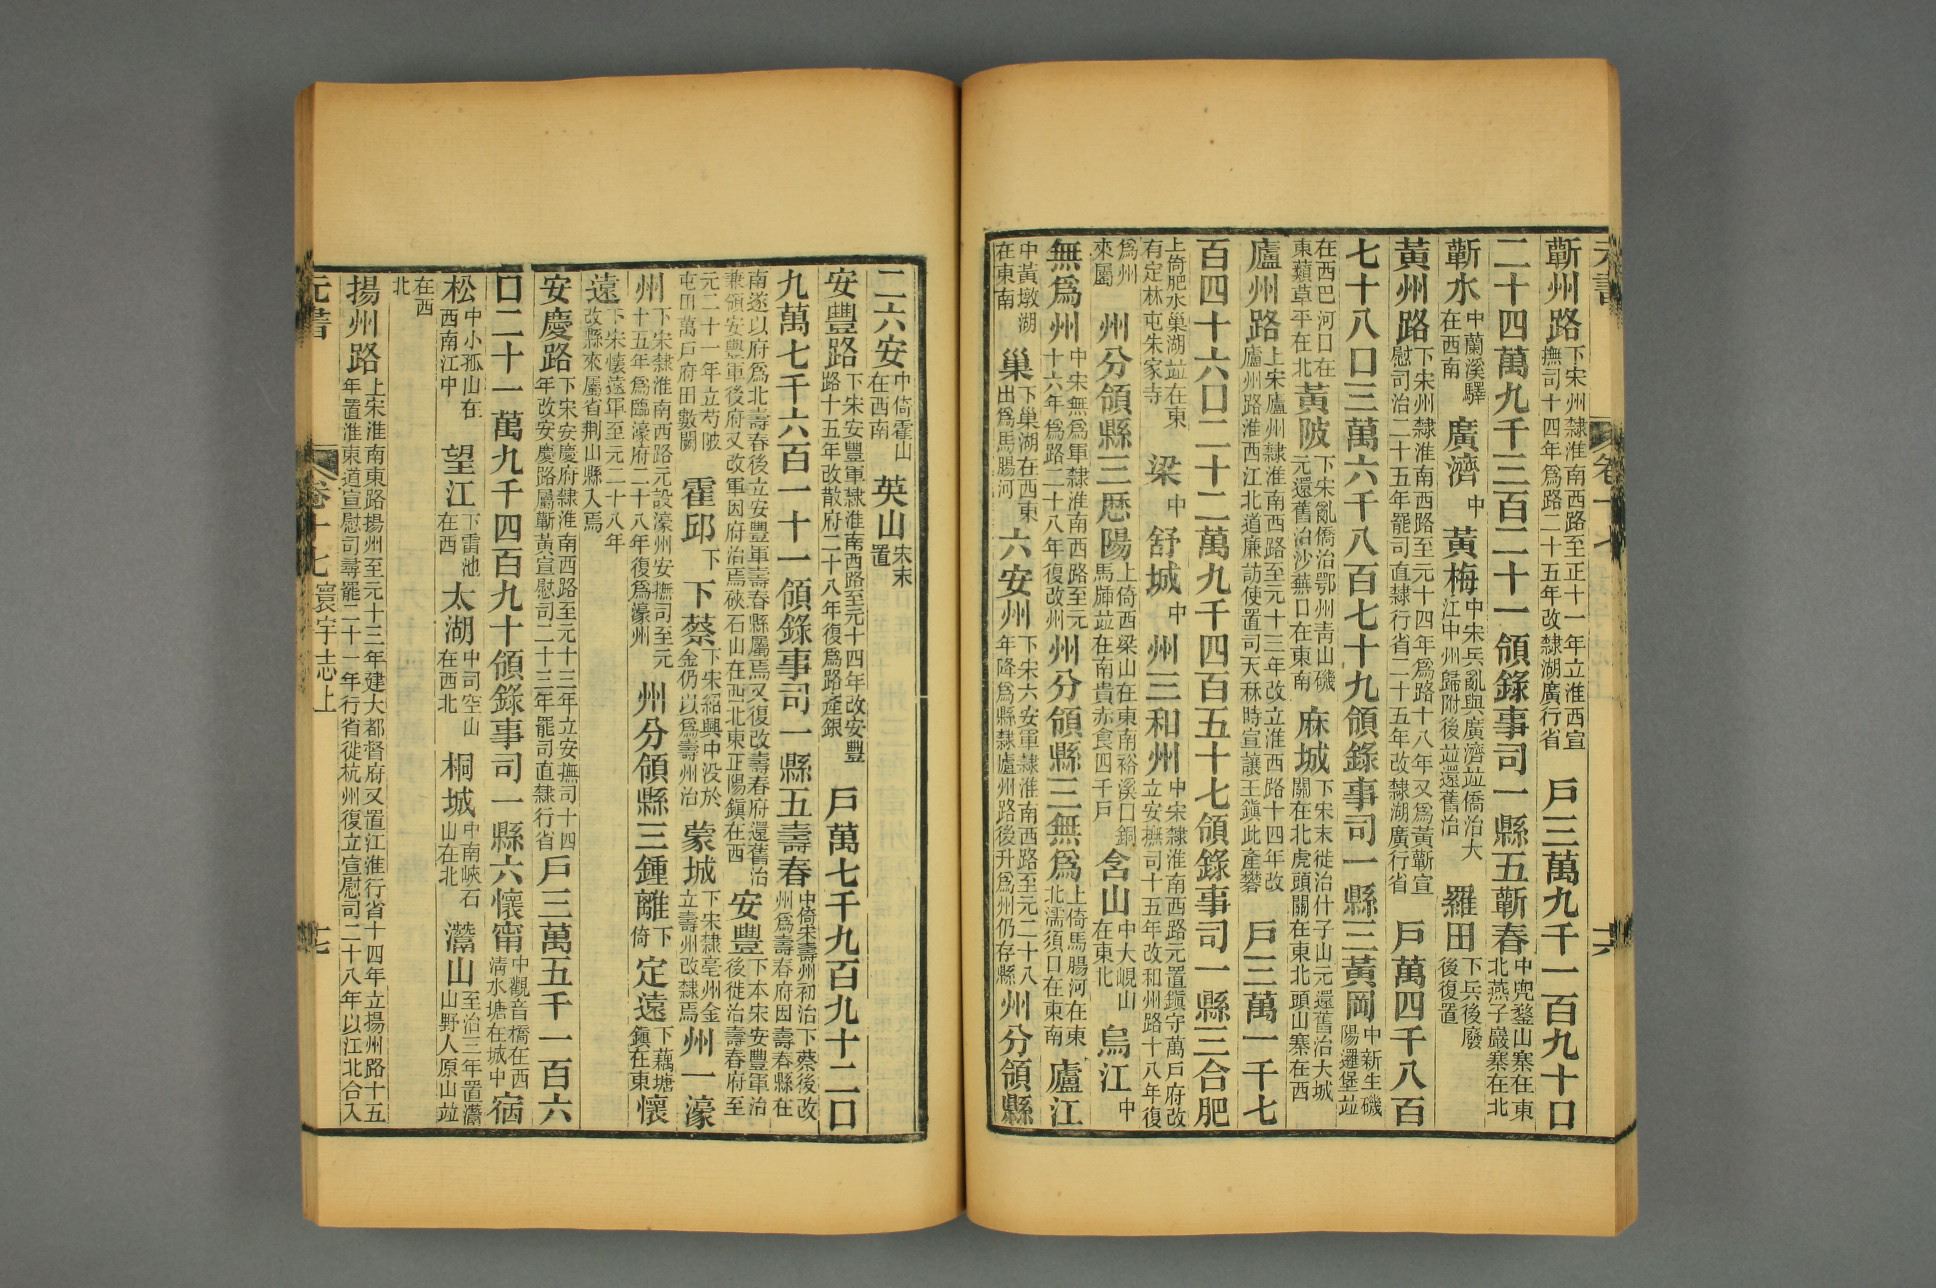 元書 卷十七 十六
蘄州路下宋州隸淮南西路至正十一年立淮西宣撫司十四年爲路二十五年改隸湖廣行省 戶三萬九千一百九十口
二十四萬九千三百二十一領錄事司一縣五蘄春中兜鍪山寨在東北燕子巖寨在北
蘄水中蘭溪驛在西南 廣濟中 黃梅中宋兵亂與廣濟竝僑治大江中州歸附後竝還舊治 羅田下兵後廢後復置
黃州路下宋州隸淮南西路至元十四年爲路十八年又爲黃蘄宣慰司治二十五年罷司直隸行省二十五年改隸湖廣行省 戶萬四千八百
七十八口三萬六千八百七十九領錄事司一縣三黃岡中新生磯陽邏堡竝
在西巴河口在東蘱草平在北 黃陂下宋亂僑治鄂州靑山磯元還舊治沙蕪口在東南 麻城下宋末徙治什子山元還舊治大城關在北虎頭關在東北頭山寨在西
廬州路上宋廬州隸淮南西路至元十三年改立淮西路十四年改廬州路淮西江北道廉訪使置司天秝時宣讓王鎭此產礬 戶三萬一千七
百四十六口二十二萬九千四百五十七領錄事司一縣三合肥
上倚肥水巢湖竝在東有定林屯朱家寺 梁中 舒城中 州三和州中宋隸淮南西路元置鎭守萬戶府改立安撫司十五年改和州路十八年復
爲州來屬 州分領縣三歷陽上倚西梁山在東南裕溪口銅馬㕔竝在南貴赤食四千戶 含山中大峴山在東北 烏江中
無爲州中宋無爲軍隸淮南西路至元十六年爲路二十八年復改州 州分領縣三無爲上倚馬腸河在東北濡須口在東南 廬江
中黃墩湖在東南 巢下巢湖在西東出爲馬腸河 六安州下宋六安軍隸淮南西路至元二十八年降爲縣隸廬州路後升爲州仍存縣 州分領縣
二六安中倚霍山在西南 英山宋末置
安豐路下宋安豐軍隸淮南西路至元十四年改安豐路十五年改散府二十八年復爲路產銀 戶萬七千九百九十二口
九萬七千六百一十一領錄事司一縣五壽春中倚宋壽州初治下蔡後改州爲壽春府因壽春縣在
南遂以府爲北壽春後立安豐軍壽春縣屬焉又復改壽春府還舊治兼領安豐軍後府又改軍因府治焉硤石山在西北東正陽鎭在西 安豐下本宋安豐軍治後徙治壽春府至
元二十一年立芍陂屯田萬戶府田數闕 霍邱下 下蔡下宋紹興中没於金仍以爲壽州治 蒙城下宋隸亳州金立壽州改隸焉 州一濠
州下宋隸淮南西路元設濠州安撫司至元十五年爲臨濠府二十八年復爲濠州 州分領縣三鍾離下倚 定遠下藕塘鎭在東 懷
遠下宋懷遠軍至元二十八年改縣來屬省荆山縣入焉
安慶路下宋安慶府隸淮南西路至元十三年立安撫司十四年改安慶路屬蘄黃宣慰司二十三年罷司直隸行省 戶三萬五千一百六
口二十一萬九千四百九十領錄事司一縣六懷甯中觀音橋在西淸水塘在城中 宿
松中小孤山在西南江中 望江下雷池在西 太湖中司空山在西北 桐城中南峽石山在北 灊山至治三年置灊山野人原山竝
在西北
揚州路上宋淮南東路揚州至元十三年建大都督府又置江淮行省十四年立揚州路十五年置淮東道宣慰司尋罷二十一年行省徙杭州復立宣慰司二十八年以江北合入
元書 卷十七 寰宇志上 十七